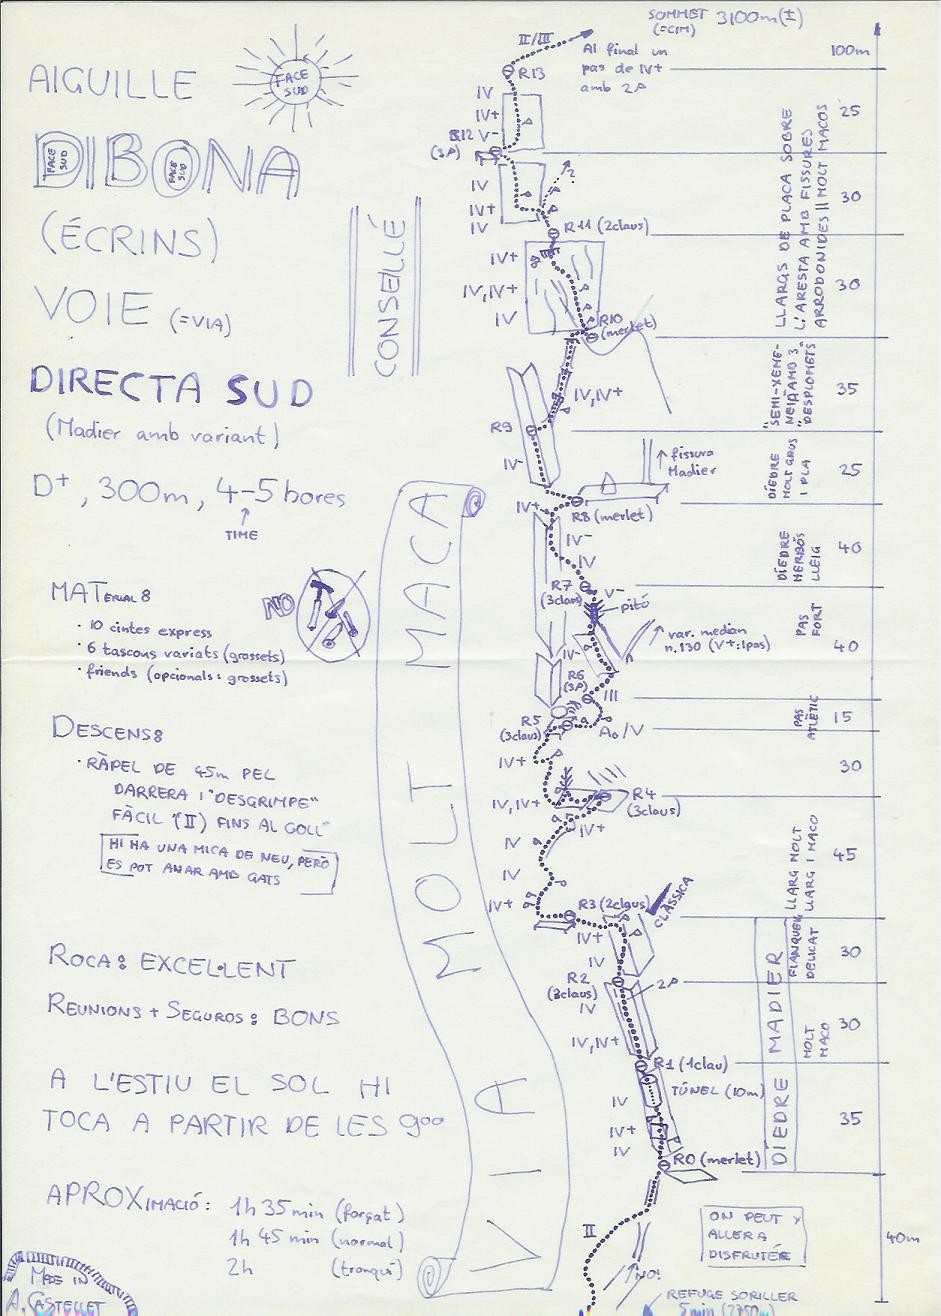 AIGUILLE
FACE SUD
DIBONA
FACE SUD
FACE SUD
(ÉCRINS)
VOIE (=VIA)
DIRECTA SUD
(Madier amb variant)
D+, 300m, 4-5 hores
↑
TIME
CONSELLÉ
MATERIAL:
· 10 cintes express
· 6 tascons variats (grossets)
· friends (opcionals: grossets)
NO
DESCENS:
· RÀPEL DE 45m PEL
DARRERA I "DESGRIMPE"
FÀCIL (II) FINS AL COLL
HI HA UNA MICA DE NEU, PERÒ
ES POT ANAR AMB GATS
ROCA: EXCEL·LENT
REUNIONS + SEGUROS: BONS
A L'ESTIU EL SOL HI
TOCA A PARTIR DE LES 9⁰⁰
APROXIMACIÓ: 1h 35 min (forçat)
1h 45 min (normal)
2h (tranqui)
MADE IN
A. CASTELLET
VIA MOLT MACA
SOMMET 3100m (±)
(=CIM)
II/III
Al final un
pas de IV+
amb 2
R13
IV
IV+
V-
R12
(3)
IV
IV+
IV
?
R11 (2claus)
IV+
IV, IV+
IV
R10
(merlet)
IV, IV+
R9
IV-
fissura
Madier
IV+
R8 (merlet)
IV-
IV
R7
(3claus)
V-
pitó
var. median
n.130 (V+:1pas)
IV-
R6
(3)
III
R5
(3claus)
A0/V
IV+
IV, IV+
R4
(3claus)
IV+
IV
IV
IV+
R3 (2claus)
CLÀSSICA
IV+
IV
R2
(3claus)
2
IV
IV, IV+
R1 (1clau)
TÚNEL (10m)
IV
IV+
IV
R0 (merlet)
II
NO!
ON PEUT Y
ALLER A
DISFRUTÉR
REFUGE SORILLER
5 min (2750m)
LLARGS DE PLACA SOBRE
L'ARESTA AMB FISSURES
ARRODONIDES || MOLT MACOS
"SEMI-XEME-
NEIA" AMB 3
"DESPLOMETS"
DÍEDRE
MOLT GROS
I PLA
DÍEDRE
HERBÓS
LLEIG
PAS
FORT
PAS
ATLÈTIC
LLARG MOLT
LLARG I MACO
FLANQUEIG
DELICAT
MOLT
MACO
DÍEDRE MADIER
100m
25
30
30
35
25
40
40
15
30
45
30
30
35
40m